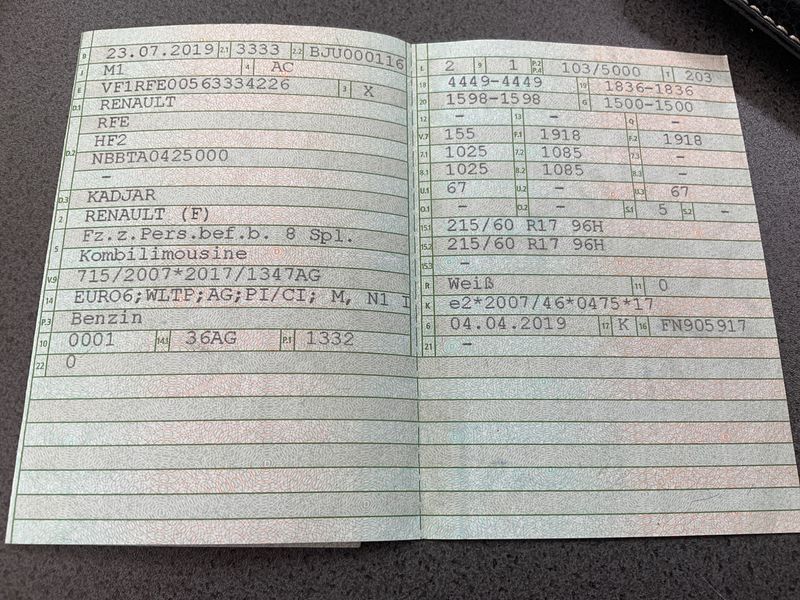 B 23.07.2019 2.1 3333 2.2 BJU000116
J M1 4 AC
E VF1RFE00563334226 3 X
D.1 RENAULT
RFE
D.2 HF2
NBBTA0425000
-
D.3 KADJAR
2 RENAULT (F)
5 Fz.z.Pers.bef.b. 8 Spl.
Kombilimousine
V.9 715/2007*2017/1347AG
14 EURO6;WLTP;AG;PI/CI; M, N1 I
P.3 Benzin
10 0001 14.1 36AG P.1 1332
22 0
L 2 9 1 P.2 P.4 103/5000 T 203
18 4449-4449 19 1836-1836
20 1598-1598 G 1500-1500
12 - 13 - Q -
V.7 155 F.1 1918 F.2 1918
7.1 1025 7.2 1085 7.3 -
8.1 1025 8.2 1085 8.3 -
U.1 67 U.2 - U.3 67
O.1 - O.2 - S.1 5 S.2 -
15.1 215/60 R17 96H
15.2 215/60 R17 96H
15.3 -
R Weiß 11 0
K e2*2007/46*0475*17
6 04.04.2019 17 K 16 FN905917
21 -